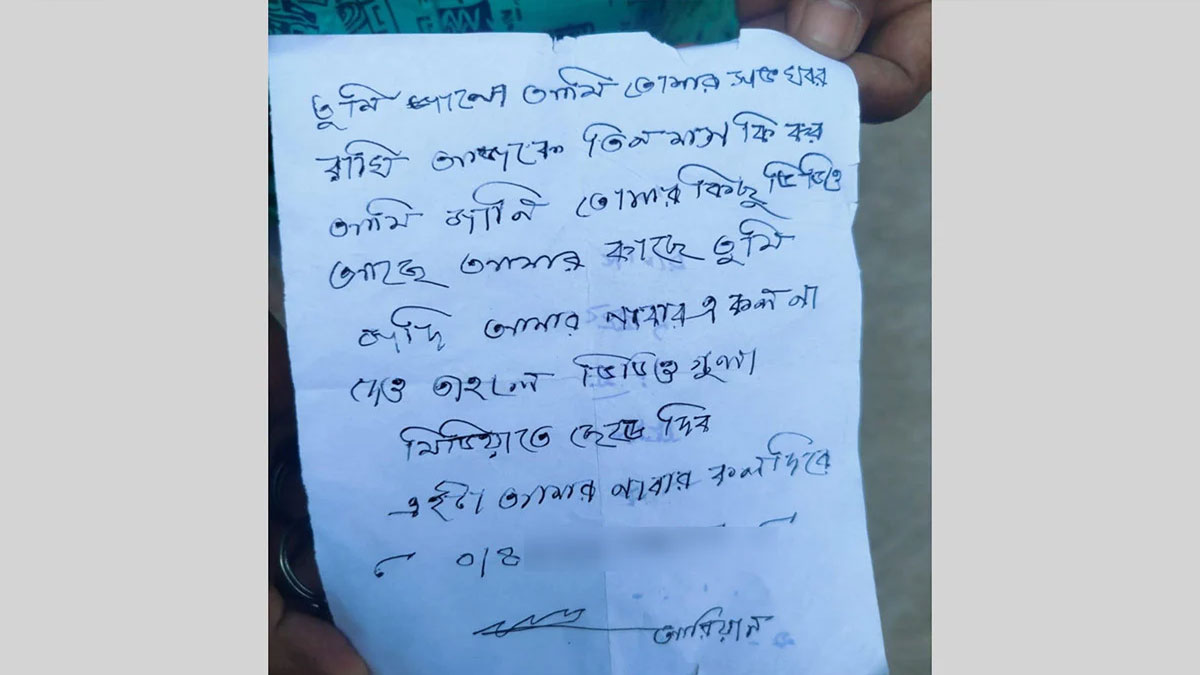 তুমি জানো আমি তোমার সব খবর
রাখি আজকে তিন মাস কি কর
আমি জানি তোমার কিছু ভিডিও
আছে আমার কাছে তুমি
যদি আমার নাবার এ কল না
দেও তাহলে ভিডিও গুলা
মিডিয়াতে ছেড়ে দিব
এইটা আমার নাবার কল দিবে
০১৪
আরিয়ান